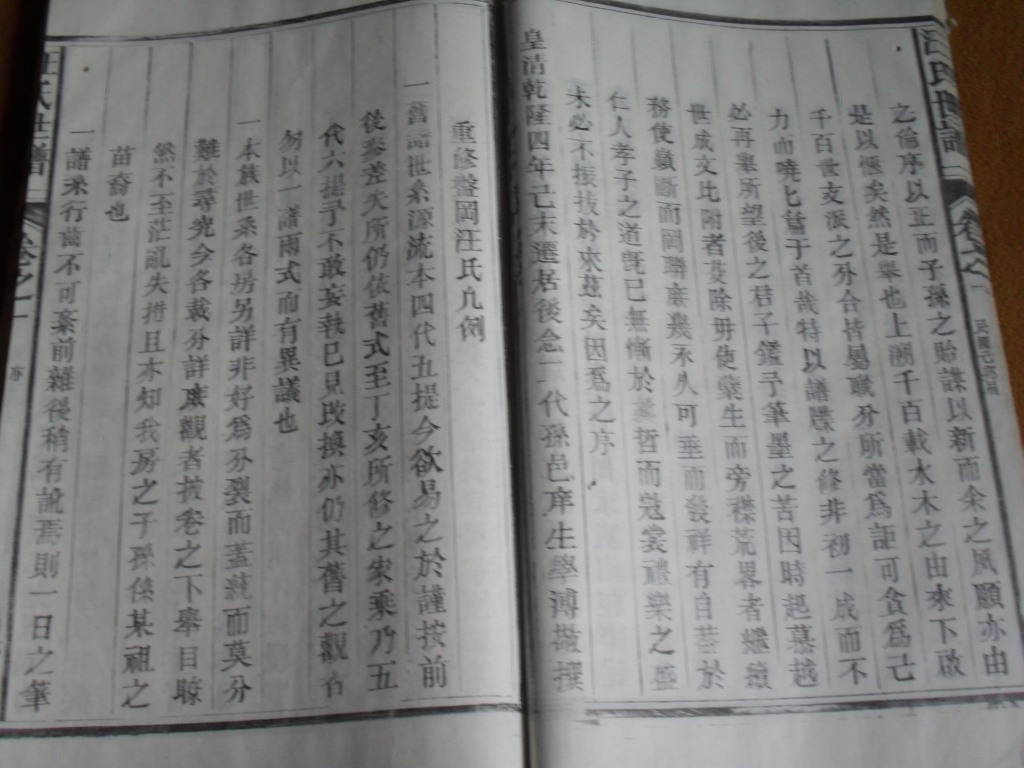 汪氏世譜
卷之一
之倫序以正而子孫之貽謀以新而余之夙願亦由
是以愜矣然是舉也上溯千百載水木之由來下啟
千百世支派之分合皆屬職分所當為詎可貪為己
力而曉曉簹于首哉特以譜牒之修非初一成而不
必再舉所望後之君子鑑予筆墨之苦因時起慕越
世成文比附者芟除毋使蘖生而旁襟荒畧者繼續
務使顯晰而岡隣庶幾永久可垂而發祥有自甚於
仁人孝子之道旣已無慚於 哲而冠裳禮樂之盛
未必不振拔於來茲矣因爲之序
皇清乾隆四年己未遷居後念一代孫邑庠生學溥 撰
重修盤岡汪氏凡例
一舊譜世系源流本四代五提今欲易之於謹按前
後叅差失所仍依舊式至丁亥所修之宋乘乃五
代六提予不敢妄執己見改撰亦仍其舊之觀者
勿以一譜兩式而有異議也
一本族世系各房另詳非好爲分裂而蓋蓰而莫分
難於尋究今各載分詳庶觀者披卷之下舉目瞭
然不至茫亂失措且未知我房之子孫係某祖之
苗裔也
一譜系行齒不可紊前雜後稍有訛焉則一日之筆
汪氏世譜
卷之一
序